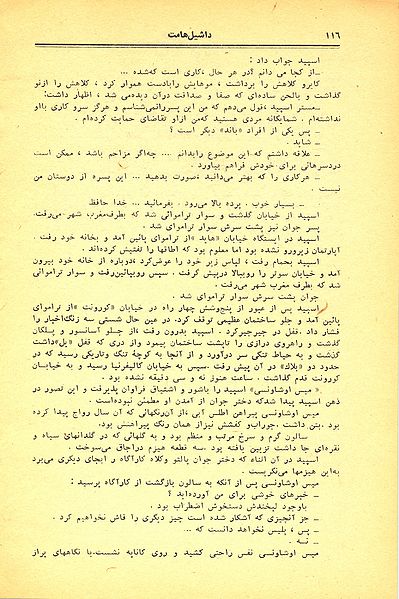 ۱۱۶ داشیل هامت
اسپید جواب داد :
ــ از کجا می دانم ؟ در هر حال ،کاری است که‌شده ...
کایرو کلاهش را برداشت ، موهایش را بادست هموار کرد ، کلاهش را ازنو
گذاشت و بالحن ساده‌ای که صفا و صداقت درآن دیده‌می شد ، اظهار داشت:
ــ مستر اسپید ،قول می‌دهم که من این پسررانمی‌شناسم و هرگز سرو کاری بااو
نداشته‌ام . شمایگانه مردی هستید که‌من ازاو تقاضای حمایت کرده‌ام .
ــ پس یکی از افراد «باند» دیگر است ؟
ــ شاید .
ــ علاقه داشتم که این موضوع رابدانم ... چه‌اگر مزاحم باشد ، ممکن است
دردسرهائی برای خودش فراهم بیاورد .
ــ هرکاری را که بهتر می‌دانید ،صورت بدهید ... این پسره از دوستان من
نیست .
ــ بسیار خوب . پرده بالا می‌رود . بفرمائید ... خدا حافظ
اسپید از خیابان گذشت و سوار تراموائی شد که بطرف‌مغرب شهر می‌رفت.
پسر جوان نیز پشت سرش سوار تراموای شد .
اسپید در ایستگاه خیابان «هاید» از تراموای پائین آمد و بخانه خود رفت .
آپارتمان زیرورو نشده بود اما معلوم بود که اطاقها را تفتیش کرده‌اند .
اسپید بحمام رفت ، لباس زیر خود را عوض‌کرد ،دوباره از خانه خود بیرون
آمد و خیابان سوتر را روببالا درپیش گرفت . سپس روبپائین‌رفت و سوار تراموائی
شد که بطرف مغرب شهر می‌رفت .
جوان پشت سرش سوار تراموای شد .
اسپید پس از عبور از پنج‌وشش چهار راه در خیابان «کورونت »از تراموای
پائین آمد و جلو ساختمان عظیمی توقف کرد. در عین حال شستی سه زنگ‌اخبار را
فشار داد .قفل در جیرجیرکرد . اسپید بدون رفت ،از جلو آسانسور و پلکان
گذشت و راهروی درازی را تاپشت ساختمان پیمود واز دری که قفل «یل»داشت
گذشت و به حیاط تنگی سر درآورد و از آنجا به کوچهٔ تنگ وتاریکی رسید که در
حدود دو «بلاک» در آن پیش رفت .سپس به خیابان کالیفرنیا رسید و به خیابان
کورونت قدم گذاشت . ساعت هنوز نه و سی دقیقه نشده بود .
«میس اوشاونسی» اسپید را باشور و اشتیاق فراوان پذیرفت و این تصور در
ذهن اسپید پیدا شدکه دختر جوان از آمدن او مطمئن نبوده‌است .
میس اوشاونسی پیراهن اطلس آبی ،از آن‌رنگهائی که آن سال رواج پیدا کرده
بود .بتن داشت .جوراب‌و کفشش نیزاز همان رنگ پیراهنش بود.
سالون گرم و سرخ مرتب و منظم بود و به گلهائی که در گلدانهای سیاه و
نقره‌ای جا داشت تزیین یافته بود .سه قطعه هیزم دراجاق می‌سوخت .
اسپید در آن اثناء که دختر جوان پالتو وکلاه کارآگاه را بجای دیگری می‌برد
به‌این هیزمها می‌نگریست .
میس اوشاونسی پس از آنکه به سالون بازگشت از کارآگاه پرسید :
ــ خبرهای خوشی برای من آورده‌اید ؟
باوجود لبخندش دستخوش اضطراب بود .
ــ جز آنچیزی که آشکار شده است چیز دیگری را فاش نخواهیم کرد .
ــ پس ، پلیس نخواهد دانست که ...
ــ نه .
میس اوشاونسی نفس راحتی کشید و روی کاناپه نشست.با نگاههای پراز